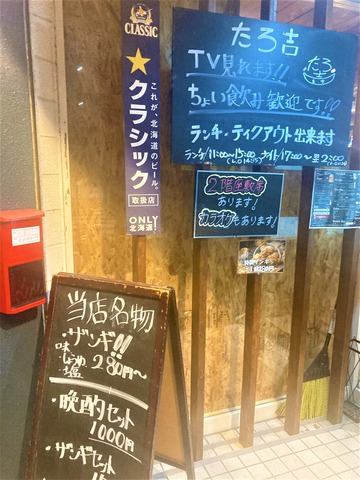 CLASSIC
これが、北海道のビール。
クラシック
取扱店
ONLY
北海道!
たろ吉
たろ
吉
TV見れます!!
ちょい飲み歓迎です!!
ランチ・テイクアウト出来ます
ランチ/11:00〜15:00 ナイト/17:00〜翌2:00
2階座敷席
あります!
カラオケもあります!
当店名物
・ザンギ!!
味・しょうゆ
・塩
280円〜
・晩酌セット
1000円
・ザンギセット